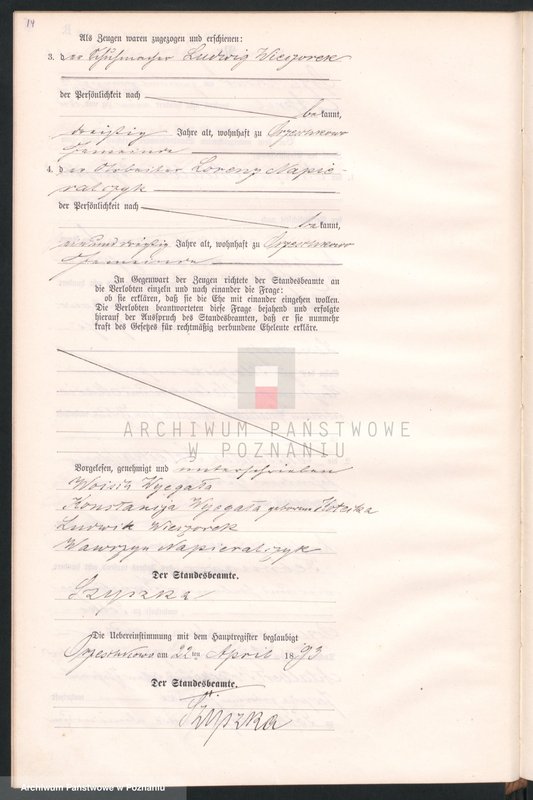 14
Als Zeugen waren zugezogen und erschienen:
3. der Schuhmacher Ludwig Wieczorek
der Persönlichkeit nach
bekannt,
dreißig Jahre alt, wohnhaft zu Orzeschkowo
Gemeinde
4. der Arbeiter Lorenz Napie-
ralczyk
der Persönlichkeit nach
bekannt,
einunddreißig Jahre alt, wohnhaft zu Orzeschkowo
Gemeinde
In Gegenwart der Zeugen richtete der Standesbeamte an
die Verlobten einzeln und nach einander die Frage:
ob sie erklären, daß sie die Ehe mit einander eingehen wollen.
Die Verlobten beantworteten diese Frage bejahend und erfolgte
hierauf der Ausspruch des Standesbeamten, daß er sie nunmehr
kraft des Gesetzes für rechtmäßig verbundene Eheleute erkläre.
ARCHIWUM PAŃSTWOWE
W POZNANIU
Vorgelesen, genehmigt und unterschrieben
Woicih Wyegała
Konstancija Wyegała geborene
Ludwik Wieczorek
Wawrzyn Napieralczyk
Der Standesbeamte.
Szyszka
Die Uebereinstimmung mit dem Hauptregister beglaubigt
Orzeschkowo am 22ten April 1893
Der Standesbeamte.
Szyszka
Archiwum Państwowe w Poznaniu